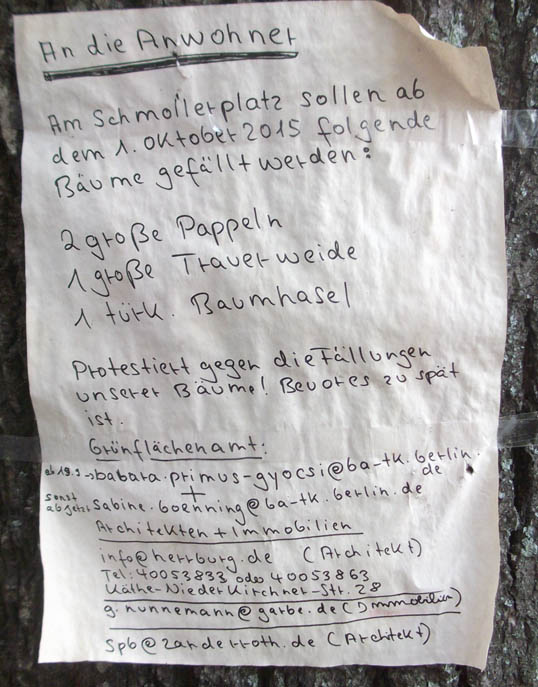 An die Anwohner
Am Schmollerplatz sollen ab
dem 1. Oktober 2015 folgende
Bäume gefällt werden:
2 große Pappeln
1 große Trauerweide
1 türk. Baumhasel
Protestiert gegen die Fällungen
unserer Bäume! Bevor es zu spät
ist.
Grünflächenamt:
ab 19.9 → babara.primus-gyocsi@ba-tk.berlin.
de
+
sonst
ab jetzt sabine.boenning@ba-tk.berlin.de
Architekten + Immobilien
info@herrburg.de (Architekt)
Tel: 40053833 oder 40053863
Käthe-Niederkirchner-Str. 28
g.nunnemann@garbe.de (Immobilien)
spb@zanderroth.de (Architekt)